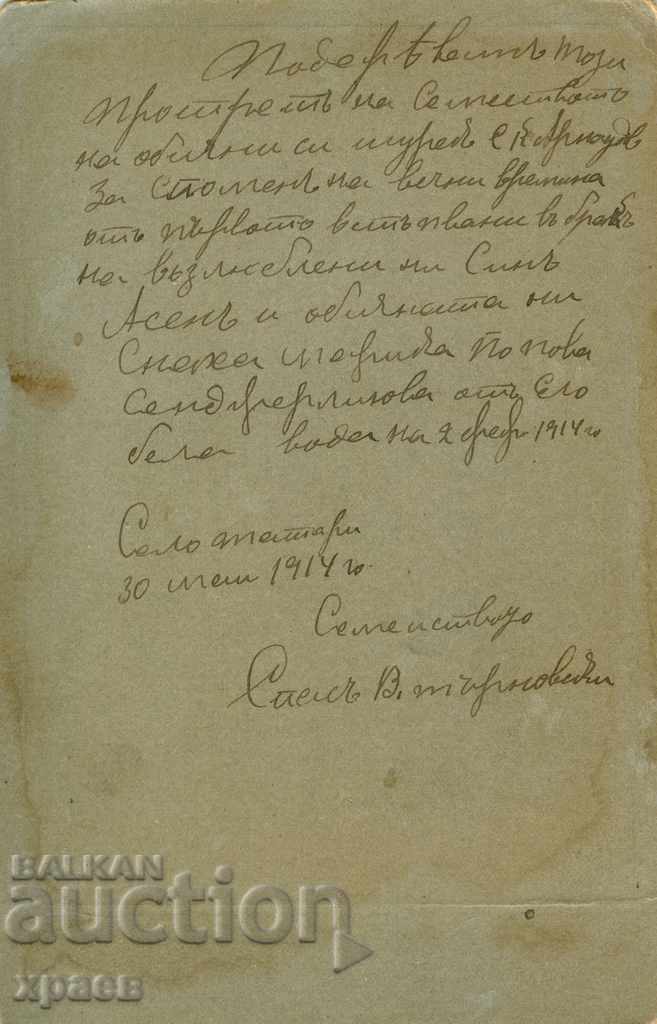 Подарѣвамъ този
протретъ на Семеството
на обични си шурей С К Арнаудв
За споменъ на вечни времина
отъ първото встъпвани въ бракъ
на възлюблени ни Синъ
Асенъ и обичната ни
Снаха Марийка Попова
Сендферликова отъ Село
бела вода на 2 фефр 1914 го
Село татари
30 маи 1914 го.
Семеиството
Спасъ В. търновски
BALKAN
auction
храев